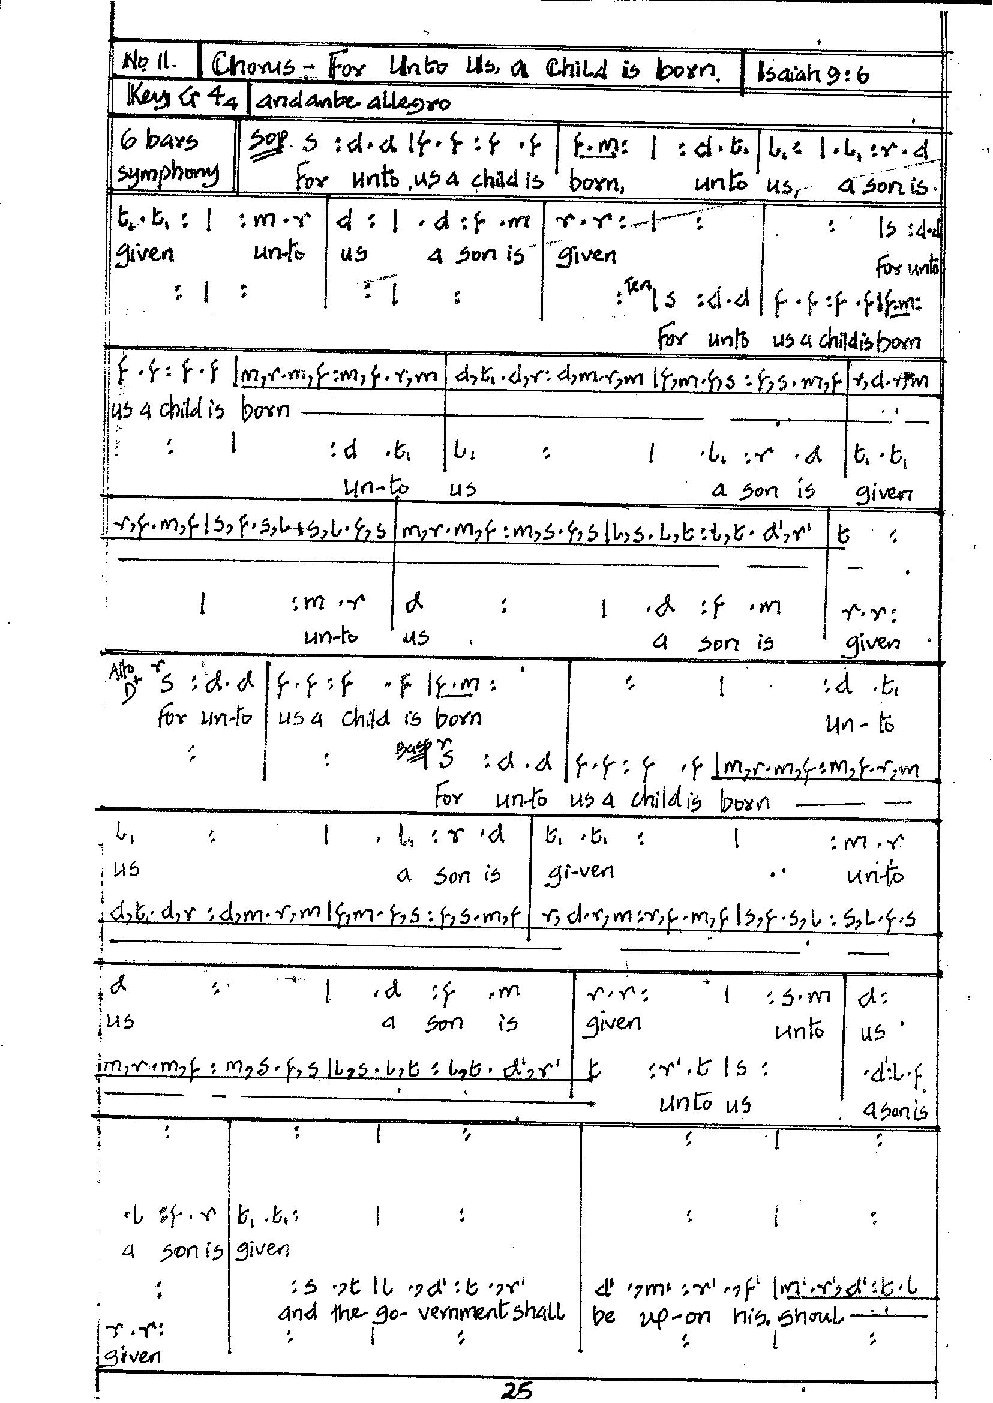 No 11. Chorus - For Unto Us, a Child is born. Isaiah 9:6
Key G 4/4 andante allegro
6 bars symphony
Sop. s :d.d |f.f :f .f | f.m: | :d.t₁ | l₁: |.l₁:r.d
For unto us a child is born, unto us, a son is
t₁.t₁: | :m.r | d: | .d:f.m | r.r:-| : | : |s :d.d
given un-to us a son is given For unto
: | : | : | : | : Ten |s :d.d | f.f:f.f|f.m:
For unto us a child is born
f.f:f.f |m,r.m,f:m,f.r,m | d,t₁.d,r:d,m.r,m |f,m.f,s:f,s.m,f | r,d.r,m
us a child is born
: | :d .t₁ | l₁ : | .l₁ :r .d | t₁.t₁
un-to us a son is given
r,f.m,f|s,f.s,l:s,l.f,s | m,r.m,f:m,s.f,s|l,s.l,t:l,t.d',r' | t :
| :m.r | d : | .d :f .m | r.r:
un-to us a son is given
Alto D+ r s :d.d | f.f:f .f |f.m: | : | :d .t₁
for un-to us a child is born un-to
: | : Bass r s :d.d | f.f:f .f |m,r.m,f:m,f.r,m
For unto us a child is born
l₁ : | .l₁:r.d | t₁.t₁: | :m.r
us a son is gi-ven unto
d,t₁.d,r:d,m.r,m|f,m.f,s:f,s.m,f | r,d.r,m:r,f.m,f|s,f.s,l:s,l.f.s
d : | .d :f .m | r.r: | :s.m | d:
us a son is given unto us
m,r.m,f:m,s.f,s|l,s.l,t:l,t.d',r' | t :r'.t|s: | .d':l.f
unto us a son is
: | : | : | : | :
.l:f.r | t₁.t₁: | : | : | :
a son is given
: | :s .,t|l .,d':t .,r' | d' .,m':r' .,f'|m'.r',d':t.l
and the go-vernment shall be up-on his shoul
r.r: | : | : | : | :
given
25